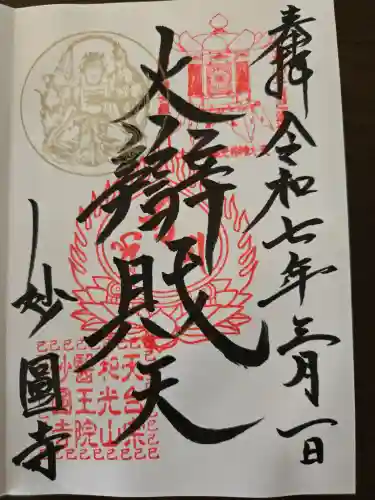 奉拝
令和七年三月一日
大辨財天
妙圓寺
天台宗
和光山
醫王院
妙圓寺